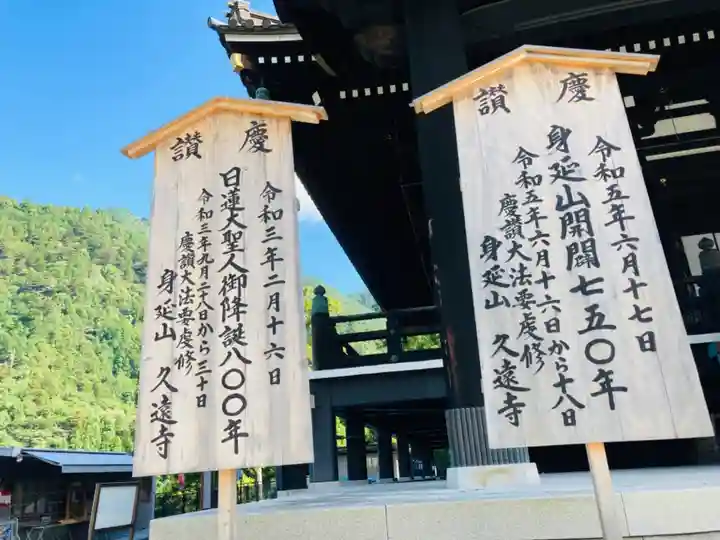 慶讃
令和五年六月十七日
身延山開闢七五〇年
令和五年六月十六日から十八日
慶讃大法要虔修
身延山 久遠寺
慶讃
令和三年二月十六日
日蓮大聖人御降誕八〇〇年
令和三年九月二十八日から三十日
慶讃大法要虔修
身延山 久遠寺